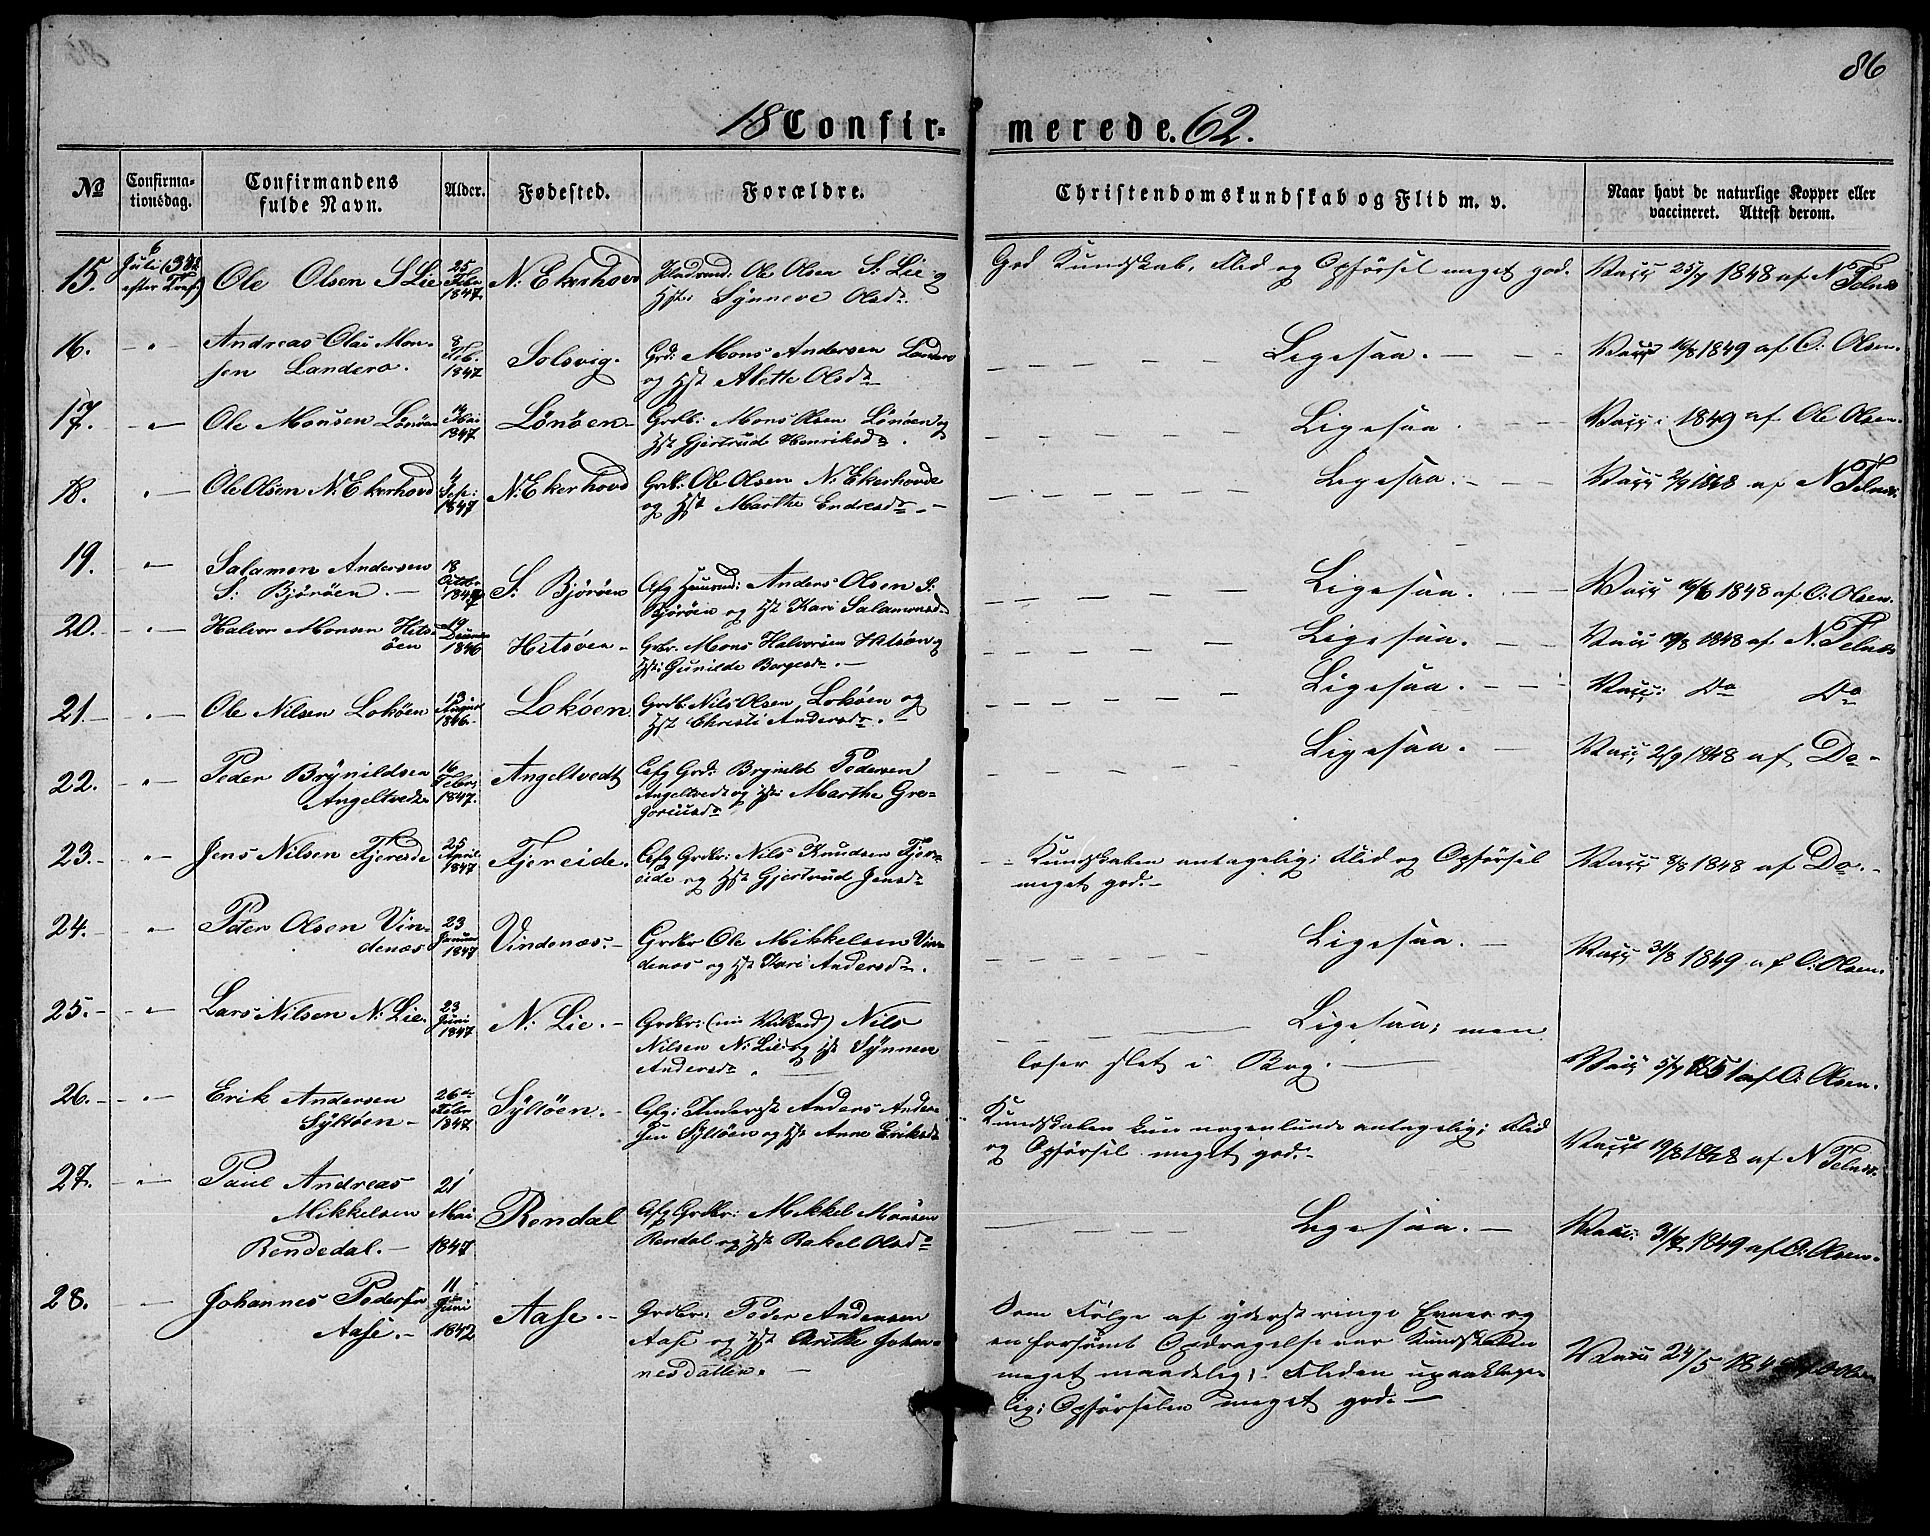 86
18 Confir= merede. 62.
No Confirma- tionsdag. Confirmandens fulde Navn. Alder. Fødested. Forældre. Christendomskundskab og Flid m. v. Naar havt de naturlige Kopper eller vaccineret. Attest derom.
15. 6 Juli (3die efter Tref) Ole Olsen S Lie 25 Febr 1847. N. Ekerhovd Ole Olsen S. Lie og
Hst: Synneve Olsdr.
God Kundskab, Flid og Opførsel meget god. Vacc 25/7 1848 af N Telnæs
16. - " Andreas Olai Mon-
sen Landero. 8 Feb. 1847. Solsvig. Grd: Mons Andersen Landero
og Hst Alette Olsdr
Ligesaa. Vacc 16/8 1849 af O. Olsen.
17. - " Ole Monsen Lönöen 14 Mai 1847 Lönöen Grdb: Mons Olsen Lönöen og
Hst Gjertrud Henriksdr.
Ligesaa. Vacc: 1849 af Ole Olsen.
18. " Ole Olsen N: Ekerhovd 4 Sep: 1847 N: Ekerhovd Grdb: Ole Olsen N: Ekerhovde
og Hst Marthe Endresdr.
Ligesaa. Vacc 2/9 1848 af N Telnæs.
19. " Salamon Andersen
S: Björöen. 18 Octbr 1847 S. Björöen Afg Huusmd: Anders Olsen S:
Björöen og Hst Kari Salamonsd.
Ligesaa. Vacc 16/6 1848 af O: Olsen.
20. - " Halvor Monsen Hits-
öen 19 Decem 1846 Hitsöen Grbr. Mons Halvorsen Hitsön og
Hst: Gunilde Borgesdr.
Ligesaa. Vacc 19/8 1848 af N. Telnæs
21. - " Ole Nilsen Loköen 13 August 1846. Loköen Grdb: Nils Olsen Loköen og
Hst Christi Andersdr.
Ligesaa. Vacc: Do Do
22. - " Peder Brynildsen
Angeltvedt 16 Febr 1847. Angeltvedt Afg Grd: Brynild Pedersen
Angeltvedt og Hst: Marthe Gre-
goriusdr
Ligesaa. Vacc 2/9 1848 af Do.
23. - " Jens Nilsen Fjereide 25 April 1847 Fjereide. Afg Grdbr: Nils Knudsen Fjer-
eide og Hst Gjertrud Jensdr
Kundskaben antagelig; Flid og Opförsel
meget god. Vacc 8/8 1848 af Do.
24. - " Peter Olsen Vin-
denæs 23 Januar 1847 Vindenæs. Grdbr Ole Mikkelsen Vin-
denæs og Hst Kari Andersdr.
Ligesaa. Vacc 31/8 1849 af O: Olsen.
25. - " Lars Nilsen N: Lie. 23 Juni 1847 N: Lie. Grdbr: Nils
Nilsen N: Lie og Hst Synneve
Andersdr.
Ligesaa; men
læser slet i Bog. Vacc 5/7 1851 af O: Olsen.
26. - " Erik Andersen
Syltöen 26de Febr 1847 Syltöen. Afg: Anders Ander-
sen Syltöen og Hst Anne Eriksdr
Kundskaben kun nogenlunde antagelig; Flid
og Opförsel meget god. Vacc 19/8 1848 af N Telnæs.
27. Paul Andreas
Mikkelsen
Rendedal. 21 Mai 1847 Rendal Afg Grdbr: Mikkel Monsen
Rendal og Hst Rakel Olsdr
Ligesaa. Vacc: 31/7 1849 af O: Olsen.
28. Johannes Pedersen
Aase. 11 Juni 1842 Aase. Grdbr: Peder Andersen
Aase og Hst Brithe Johan-
nesdatter.
Som Følge af yderst ringe Evner og
en forsömt Opdragelse var Kundskaben
meget maadelig; Fliden upaaklage-
lig; Opførselen meget god. Vacc 24/5 184 Olsen